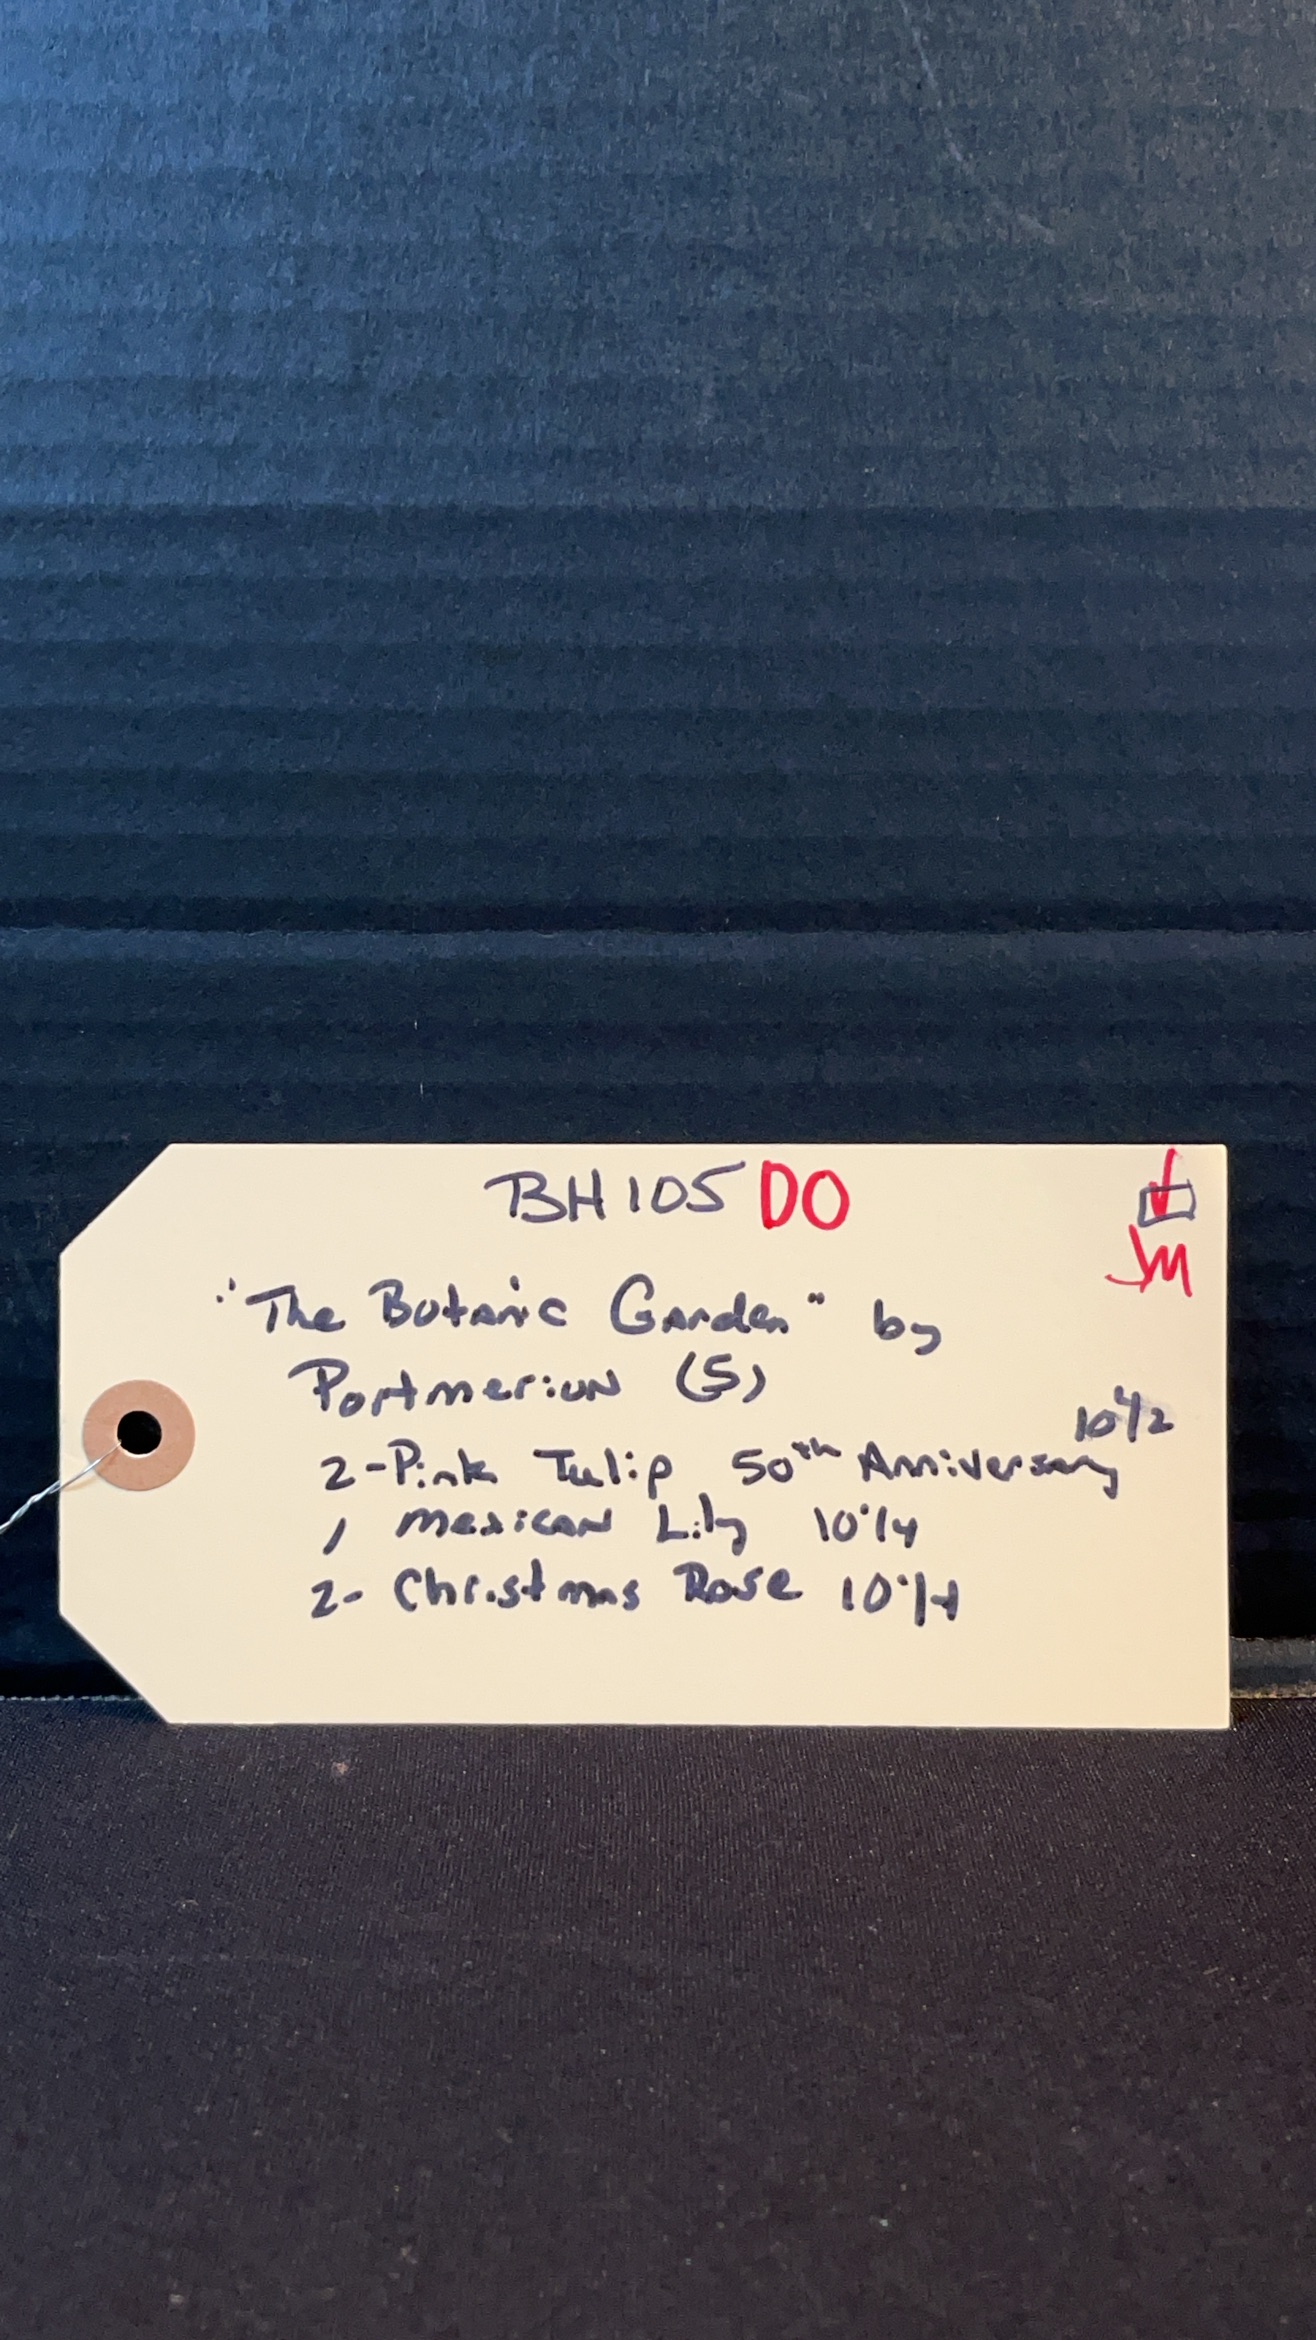 BH105 DO
JM
"The Botanic Garden" by
Portmerion (5)
10 1/2
2-Pink Tulip 50th Anniversary
1 Mexican Lily 10 1/4
2- Christmas Rose 10 1/4